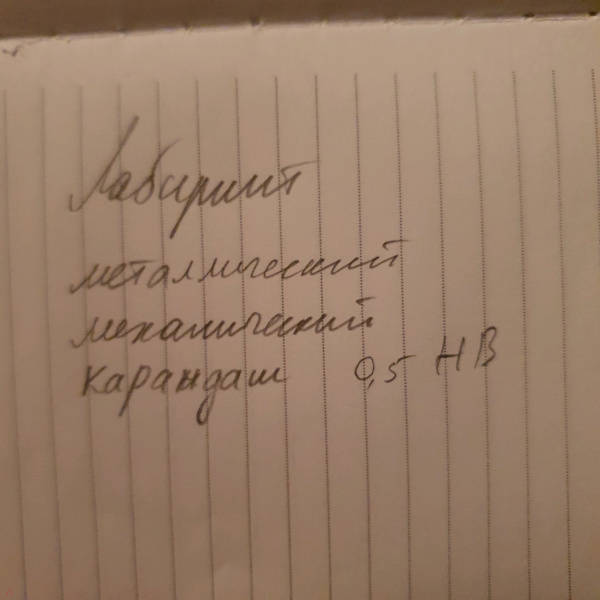 Лабиринт
металлический
механический
карандаш 0,5 HB